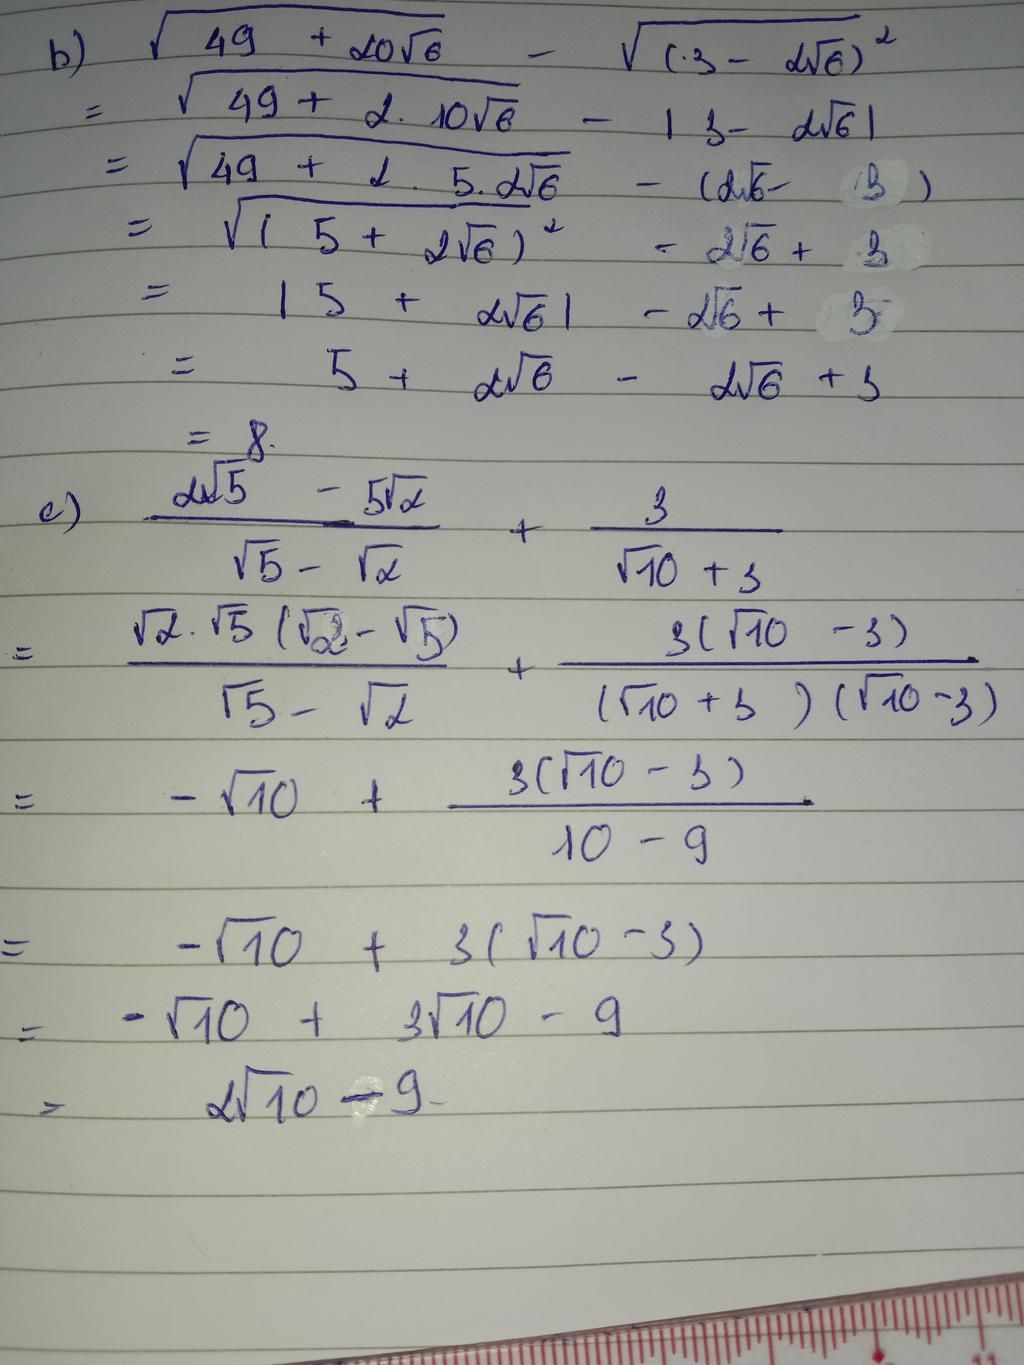 b) √(49 + 20√6) - √((3 - 2√6)²)
= √(49 + 2. 10√6) - |3 - 2√6|
= √(49 + 2. 5. 2√6) - (2√6 - 3)
= √((5 + 2√6)²) - 2√6 + 3
= |5 + 2√6| - 2√6 + 3
= 5 + 2√6 - 2√6 + 3
= 8.
c) (2√5 - 5√2)/(√5 - √2) + 3/(√10 + 3)
= (√2. √5 (√2 - √5))/(√5 - √2) + (3(√10 - 3))/((√10 + 3)(√10 - 3))
= -√10 + (3(√10 - 3))/(10 - 9)
= -√10 + 3(√10 - 3)
= -√10 + 3√10 - 9
= 2√10 - 9.